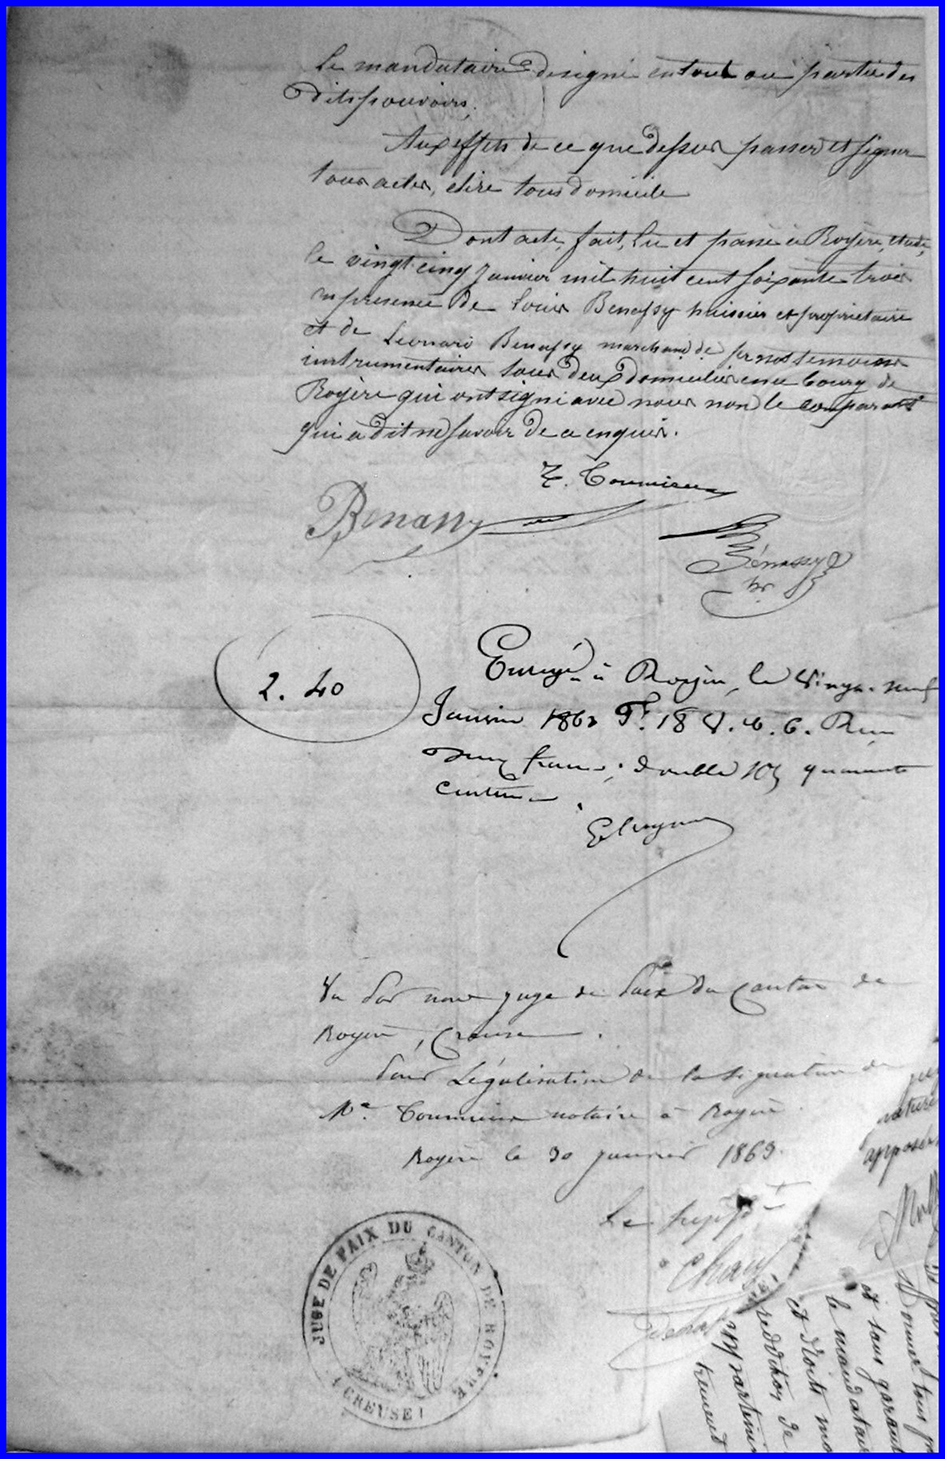 Le mandataire designé en tout ou partie des
dits pouvoirs.
Aux effets de ce que dessus passer et signer
tous actes, elire tous domicile
Dont acte, fait, lu et passé à Royère, etude,
le vingt cinq Janvier mil huit cent soixante trois
en presence de Louis Benassy huissier et propriétaire
et de Leonard Benassy marchand de temoins
instrumentaires tous deux domiciliés au bourg de
Royère qui ont signé avec nous non le comparant
qui a dit ne savoir de ce enquis.
T. Toumieux
Benassy
Bénassy
hr
2.40
Enregé à Royère, le vingt-neuf
Janvier 1863 Fo. 18 V. c. 6. Reçu
deux francs, double 10e quarante
centimes
Vu par nous juge de Paix du Canton de
Royère, Creuse.
Pour Légalisation de la signature de
Me Toumieux notaire à Royère.
Royère le 30 janvier 1863.
Le suppt
JUGE DE PAIX DU CANTON DE ROYÈRE
(CREUSE)
apposée
Donner tous
et sans garant
le mandatai
et droits
reddition de
appartenir